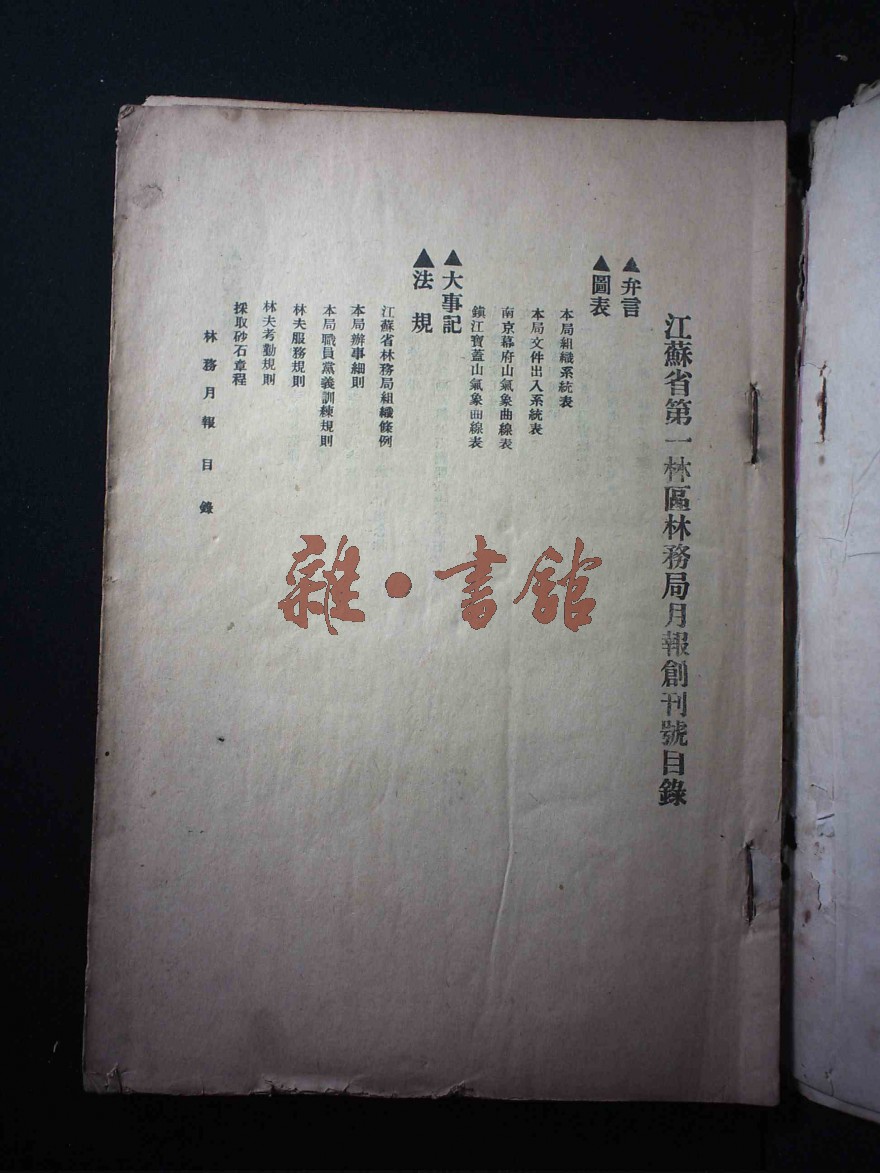 江蘇省第一林區林務局月報創刊號目錄
▲弁言
▲圖表
本局組織系統表
本局文件出入系統表
南京幕府山氣象曲線表
鎮江寶蓋山氣象曲線表
▲大事記
▲法規
江蘇省林務局組織條例
本局辦事細則
本局職員黨義訓練規則
林夫服務規則
林夫考勤規則
採取砂石章程
林務月報 目錄
雜·書館